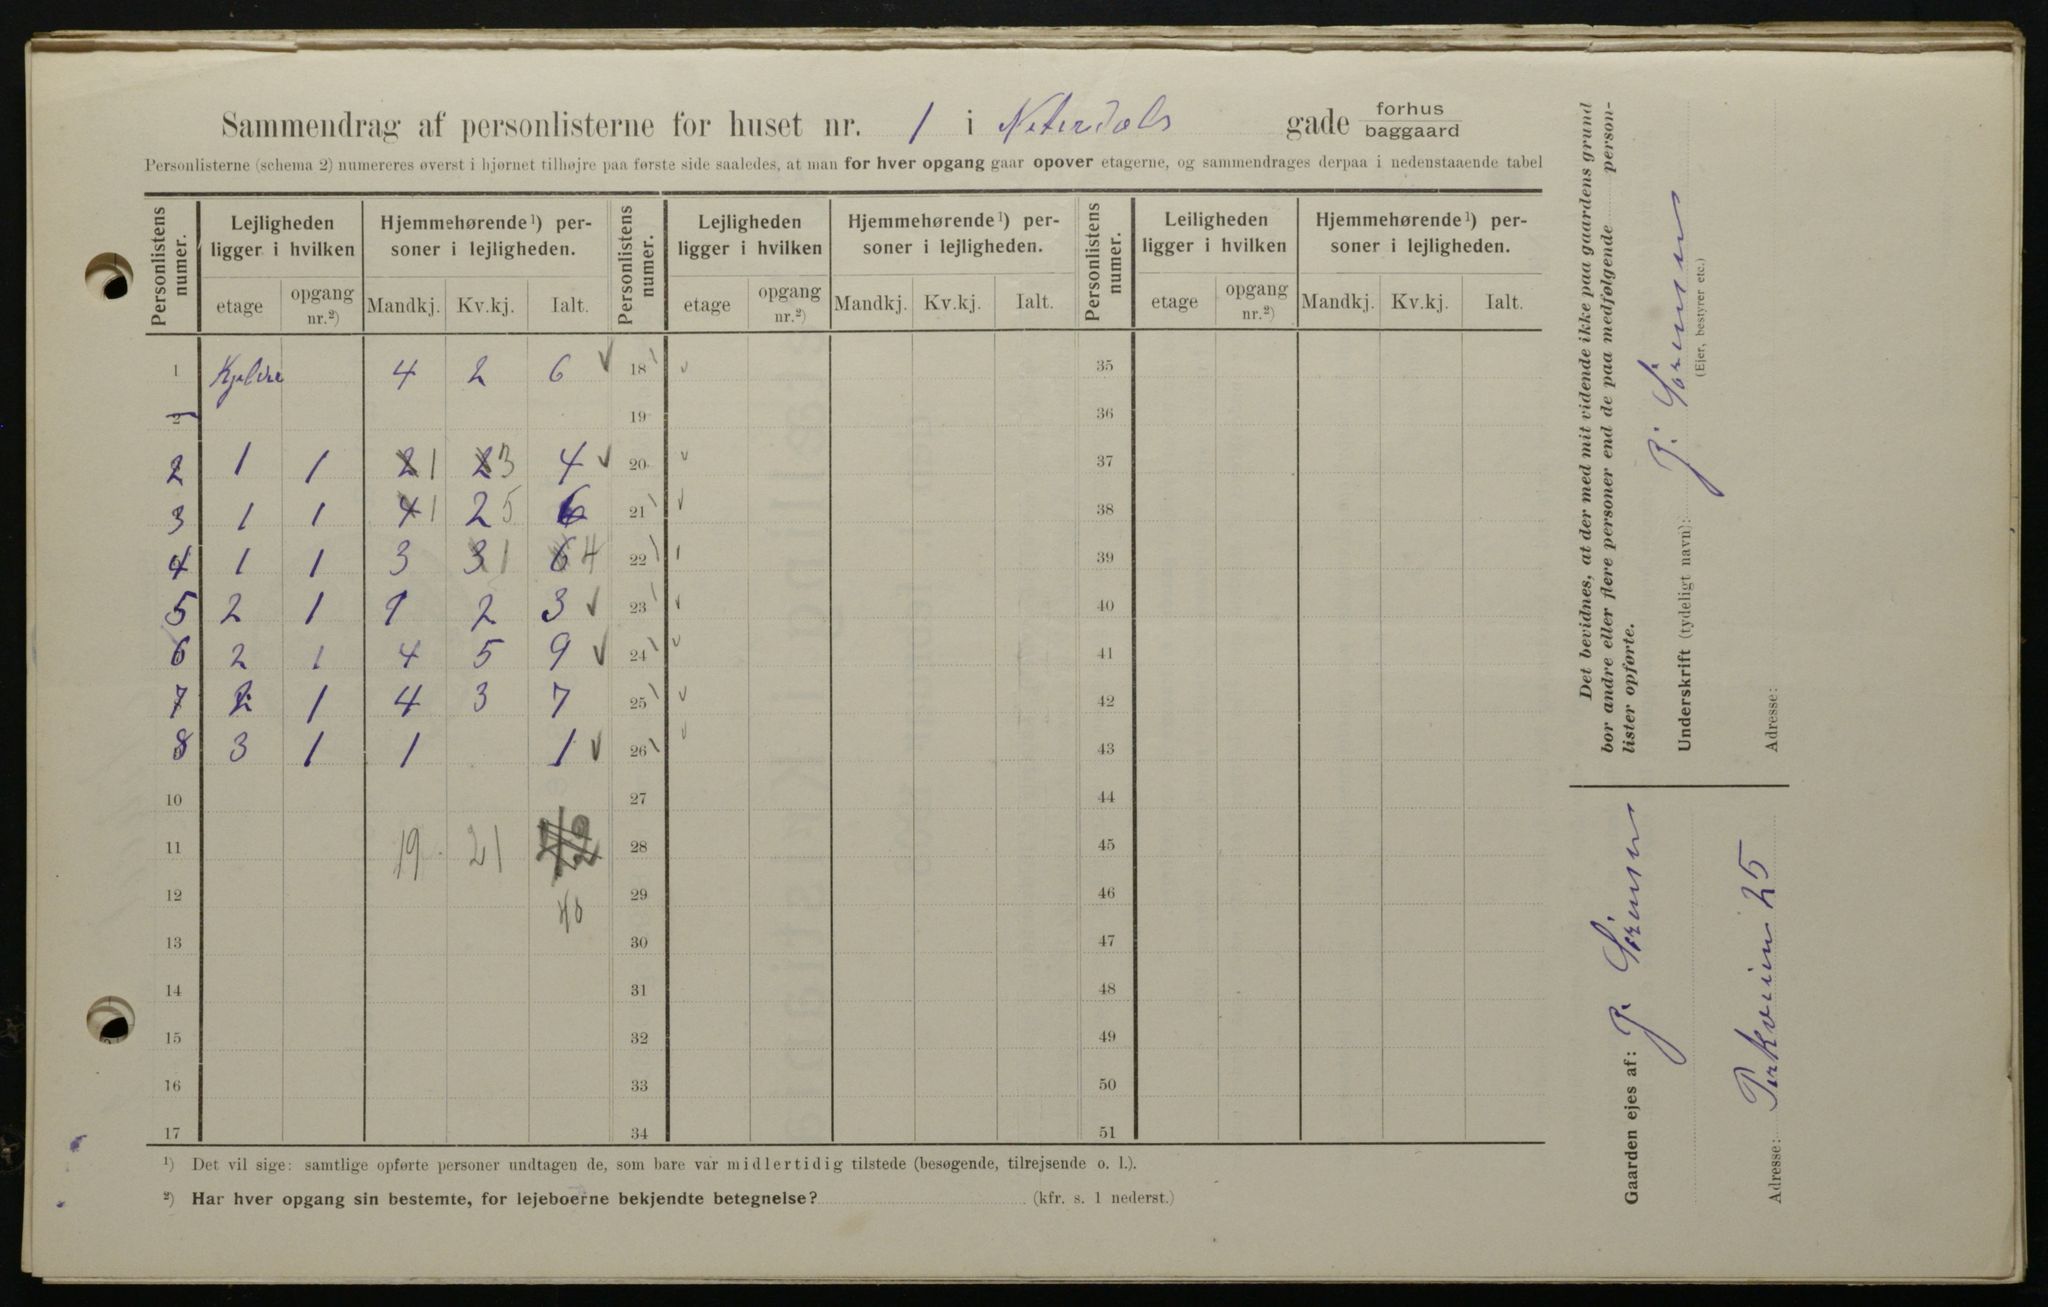 Sammendrag af personlisterne for huset nr. 1 i gade forhus baggaard
Personlisterne (schema 2) numereres øverst i hjørnet tilhøjre paa første side saaledes, at man for hver opgang gaar opover etagerne, og sammendrages derpaa i nedenstaaende tabel
Personlistens numer. Lejligheden ligger i hvilken Hjemmehørende ¹) personer i lejligheden. Personlistens numer. Lejligheden ligger i hvilken Hjemmehørende ¹) personer i lejligheden. Personlistens numer. Leiligheden ligger i hvilken Hjemmehørende ¹) personer i lejligheden.
etage opgang nr.²) Mandkj. Kv.kj. Ialt. etage opgang nr.²) Mandkj. Kv.kj. Ialt. etage opgang nr.²) Mandkj. Kv.kj. Ialt.
1 4 2 6 18 35
2 19 36
2 1 1 2 1 2 3 4 20 37
3 1 1 4 1 2 5 6 21 38
4 1 1 3 3 1 6 4 22 39
5 2 1 1 2 3 23 40
6 2 1 4 5 9 24 41
7 2 1 4 3 7 25 42
8 3 1 1 1 26 43
10 27 44
11 19 21 28 45
12 40 29 46
13 30 47
14 31 48
15 32 49
16 33 50
17 34 51
¹) Det vil sige: samtlige opførte personer undtagen de, som bare var midlertidig tilstede (besøgende, tilrejsende o. l.).
²) Har hver opgang sin bestemte, for lejeboerne bekjendte betegnelse? (kfr. s. 1 nederst.)
Det bevidnes, at der med mit vidende ikke paa gaardens grund
bor andre eller flere personer end de paa medfølgende person-
lister opførte.
Underskrift (tydeligt navn): P. Sörensen
(Ejer, bestyrer etc.)
Adresse:
Gaarden ejes af: P. Sörensen
Adresse: 25